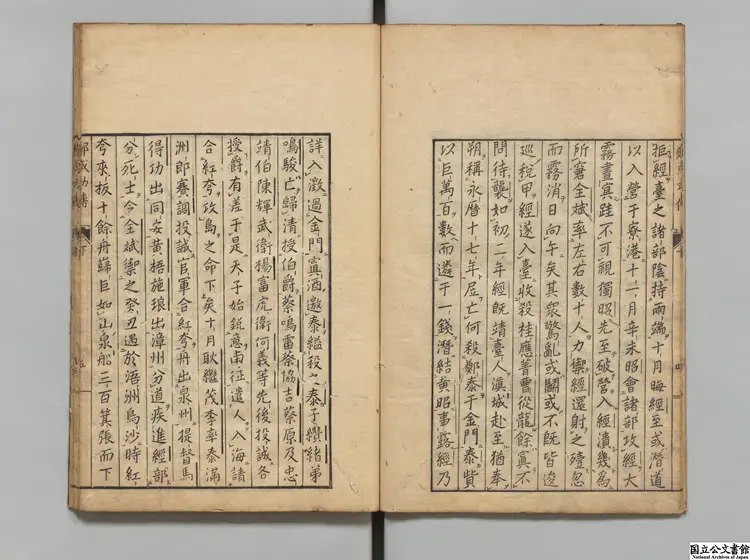 拒經臺之諸部陰持兩端十月晦經至或潛道
以入營于寮港十一月辛未昭會諸部攻經大
霧晝寘跬不可視獨昭先至破營入經潰幾為
所窘全斌率左右數十人力禦經還射之殪忽
而霧消日向午矣其衆驚亂或鬭或不既皆逡
巡稅甲經遂入臺收殺桂應菁曹從龍餘寘不
問待襲如初二年經既靖臺人滇城赴至猶奉
朔稱永曆十七年居亡何殺鄭泰于金門泰貲
以巨萬百數而遴于一錢潛結黄昭事露經乃
詳入激過金門寘酒邀泰縊殺之泰子纘緒弟
鳴駿亡歸清授伯爵蔡鳴雷蔡協吉蔡原及忠
靖伯陳輝武衛楊富虎衛何義等先後投誠各
授爵有差于是天子始鋭意南征遣人入海請
合紅夸攻島之命下矣十月耿繼茂李率泰滿
洲郎賽調投誠官軍合紅夸舟出泉州提督馬
得功出同安黄梧施琅出漳州分道疾進經部
分死士令全斌禦之癸丑遇於浯洲烏沙時紅
夸來板十餘舟巋巨如山泉船三百箕張而下
鄭成功傳 下 五
国立公文書館
National Archives of Japan